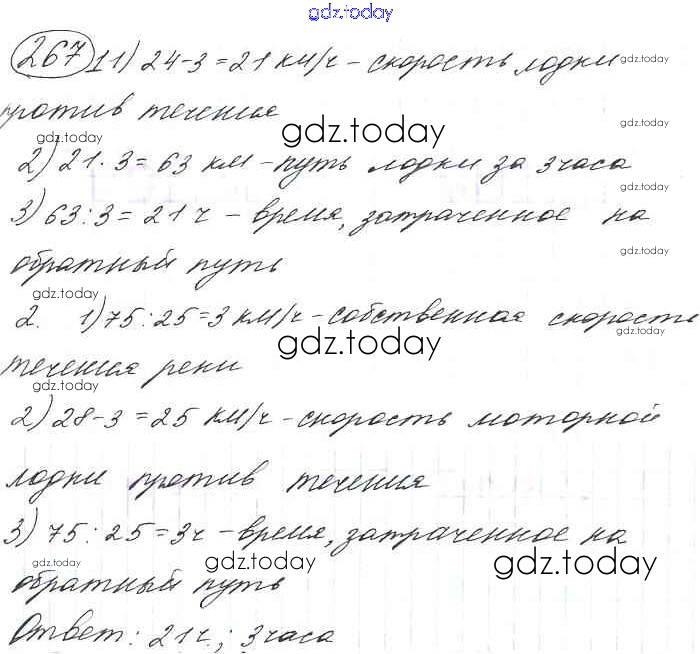 gdz.today
267 1 1) 24-3=21 км/ч - скорость лодки gdz.today
против течения gdz.today
gdz.today gdz.today
2) 21·3=63 км - путь лодки за 3 часа
gdz.today
3) 63:3=21 ч - время, затраченное на
обратный путь gdz.today
gdz.today
2. 1) 75:25=3 км/ч - собственная скорость
gdz.today gdz.today
течения реки
gdz.today
2) 28-3=25 км/ч - скорость моторной
лодки против течения
3) 75:25=3ч - время, затраченное на
gdz.today gdz.today gdz.today
обратный путь
Ответ: 21ч.; 3 часа